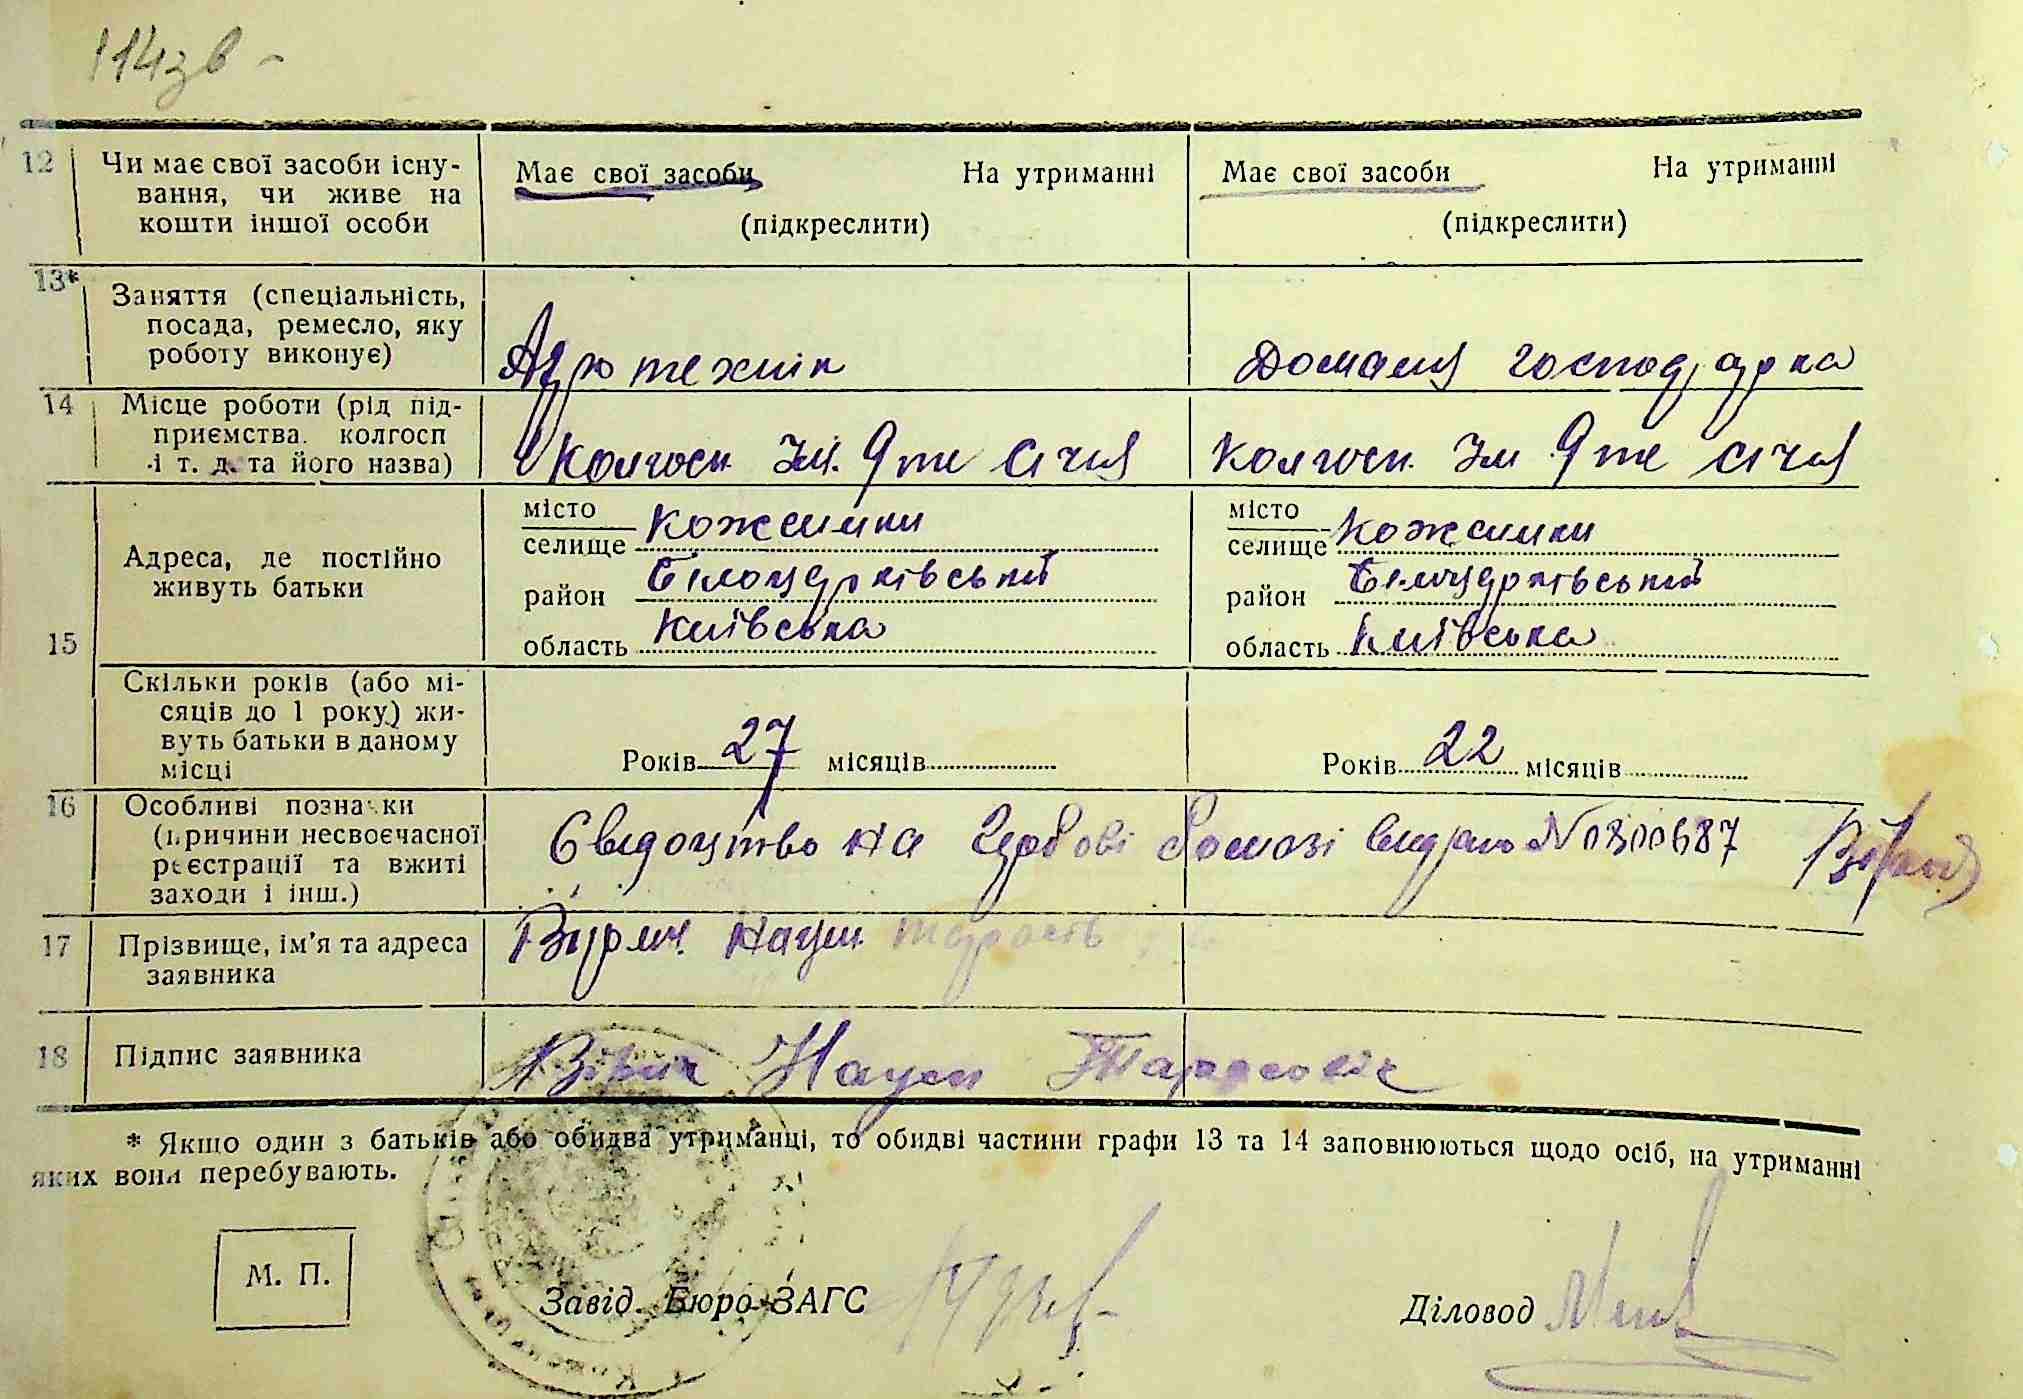 114зв -
12 Чи має свої засоби існу-
вання, чи живе на
кошти іншої особи
Має свої засоби На утриманні
(підкреслити)
Має свої засоби На утриманні
(підкреслити)
13* Заняття (спеціальність,
посада, ремесло, яку
роботу виконує)
Агротехнік
Домашня господарка
14 Місце роботи (рід під-
приємства. колгосп
і т. д. та його назва)
Колгосп Ім. 9 те січня
Колгосп Ім 9 те січня
15 Адреса, де постійно
живуть батьки
місто
селище Кожемики
район Білоцерківський
область Київська
місто
селище Кожемики
район Білоцерківський
область Київська
Скільки років (або мі-
сяців до 1 року) жи-
вуть батьки в даному
місці
Років 27 місяців
Років 22 місяців
16 Особливі познаки
(причини несвоєчасної
реєстрації та вжиті
заходи і інш.)
Євидоцтво на видано №
17 Прізвище, ім'я та адреса
заявника
Наум
18 Підпис заявника
Наум Тарасовіч
* Якщо один з батьків або обидва утриманці, то обидві частини графи 13 та 14 заповнюються щодо осіб, на утриманні
яких вони перебувають.
М. П.
Завід. Бюро ЗАГС
Діловод